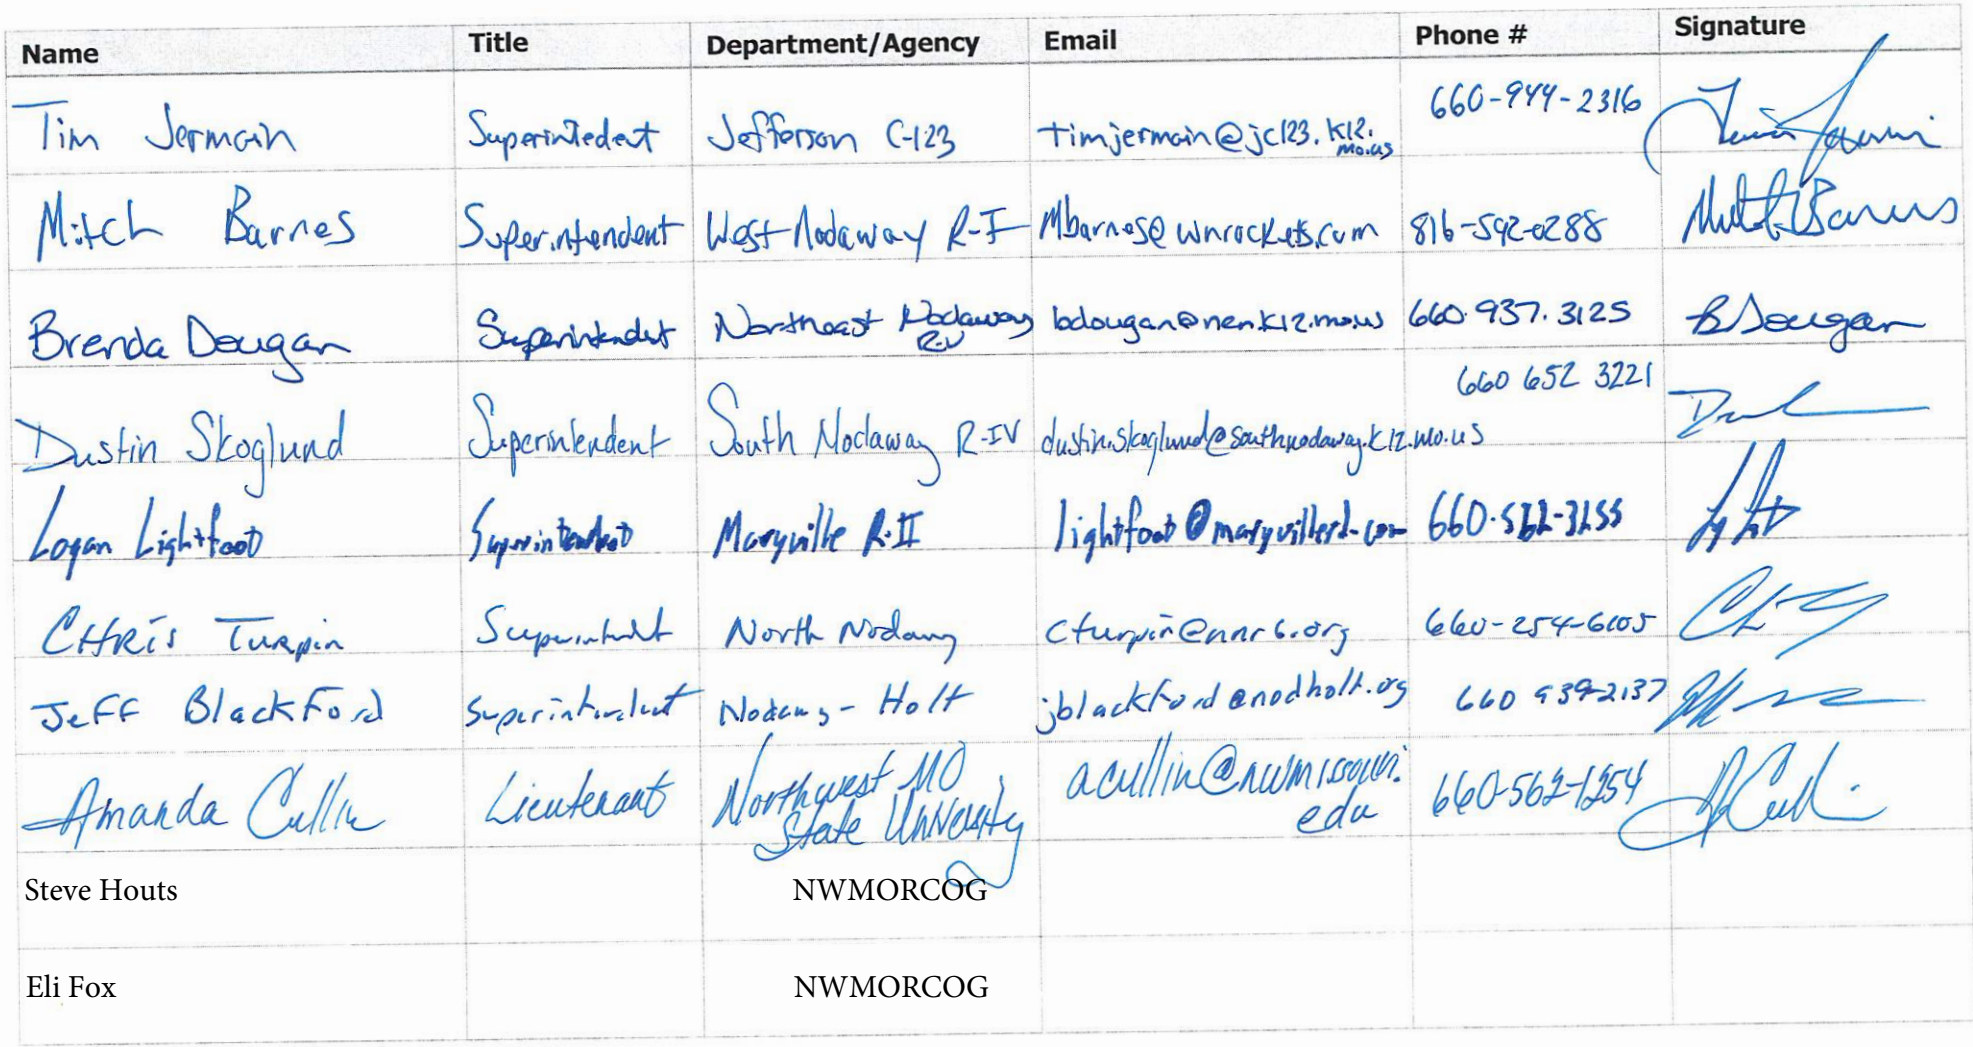 Name Title Department/Agency Email Phone # Signature
Tim Jermain Superintedent Jefferson C-123 timjermain@jc123.k12.mo.us 660-944-2316
Mitch Barnes Superintendent West Nodaway R-I Mbarnes@wnrockets.com 816-592-0288 Mitch Barnes
Brenda Dougan Superintendent Northeast Nodaway R-V bdougan@nen.k12.mo.us 660.937.3125 B Dougan
Dustin Skoglund Superintendent South Nodaway R-IV dustin.skoglund@southnodaway.k12.mo.us 660 652 3221
Logan Lightfoot Superintendent Maryville R-II 
CHRis Turpin Superintendent North Nodaway cturpin@nnr6.org
Jeff Blackford Superintendent Nodaway - Holt jblackford@nodholt.org 660 939-2137
Amanda Cullin Lieutenant Northwest MO State University acullin@nwmissouri.edu 660-562-1254
Steve Houts NWMORCOG
Eli Fox NWMORCOG